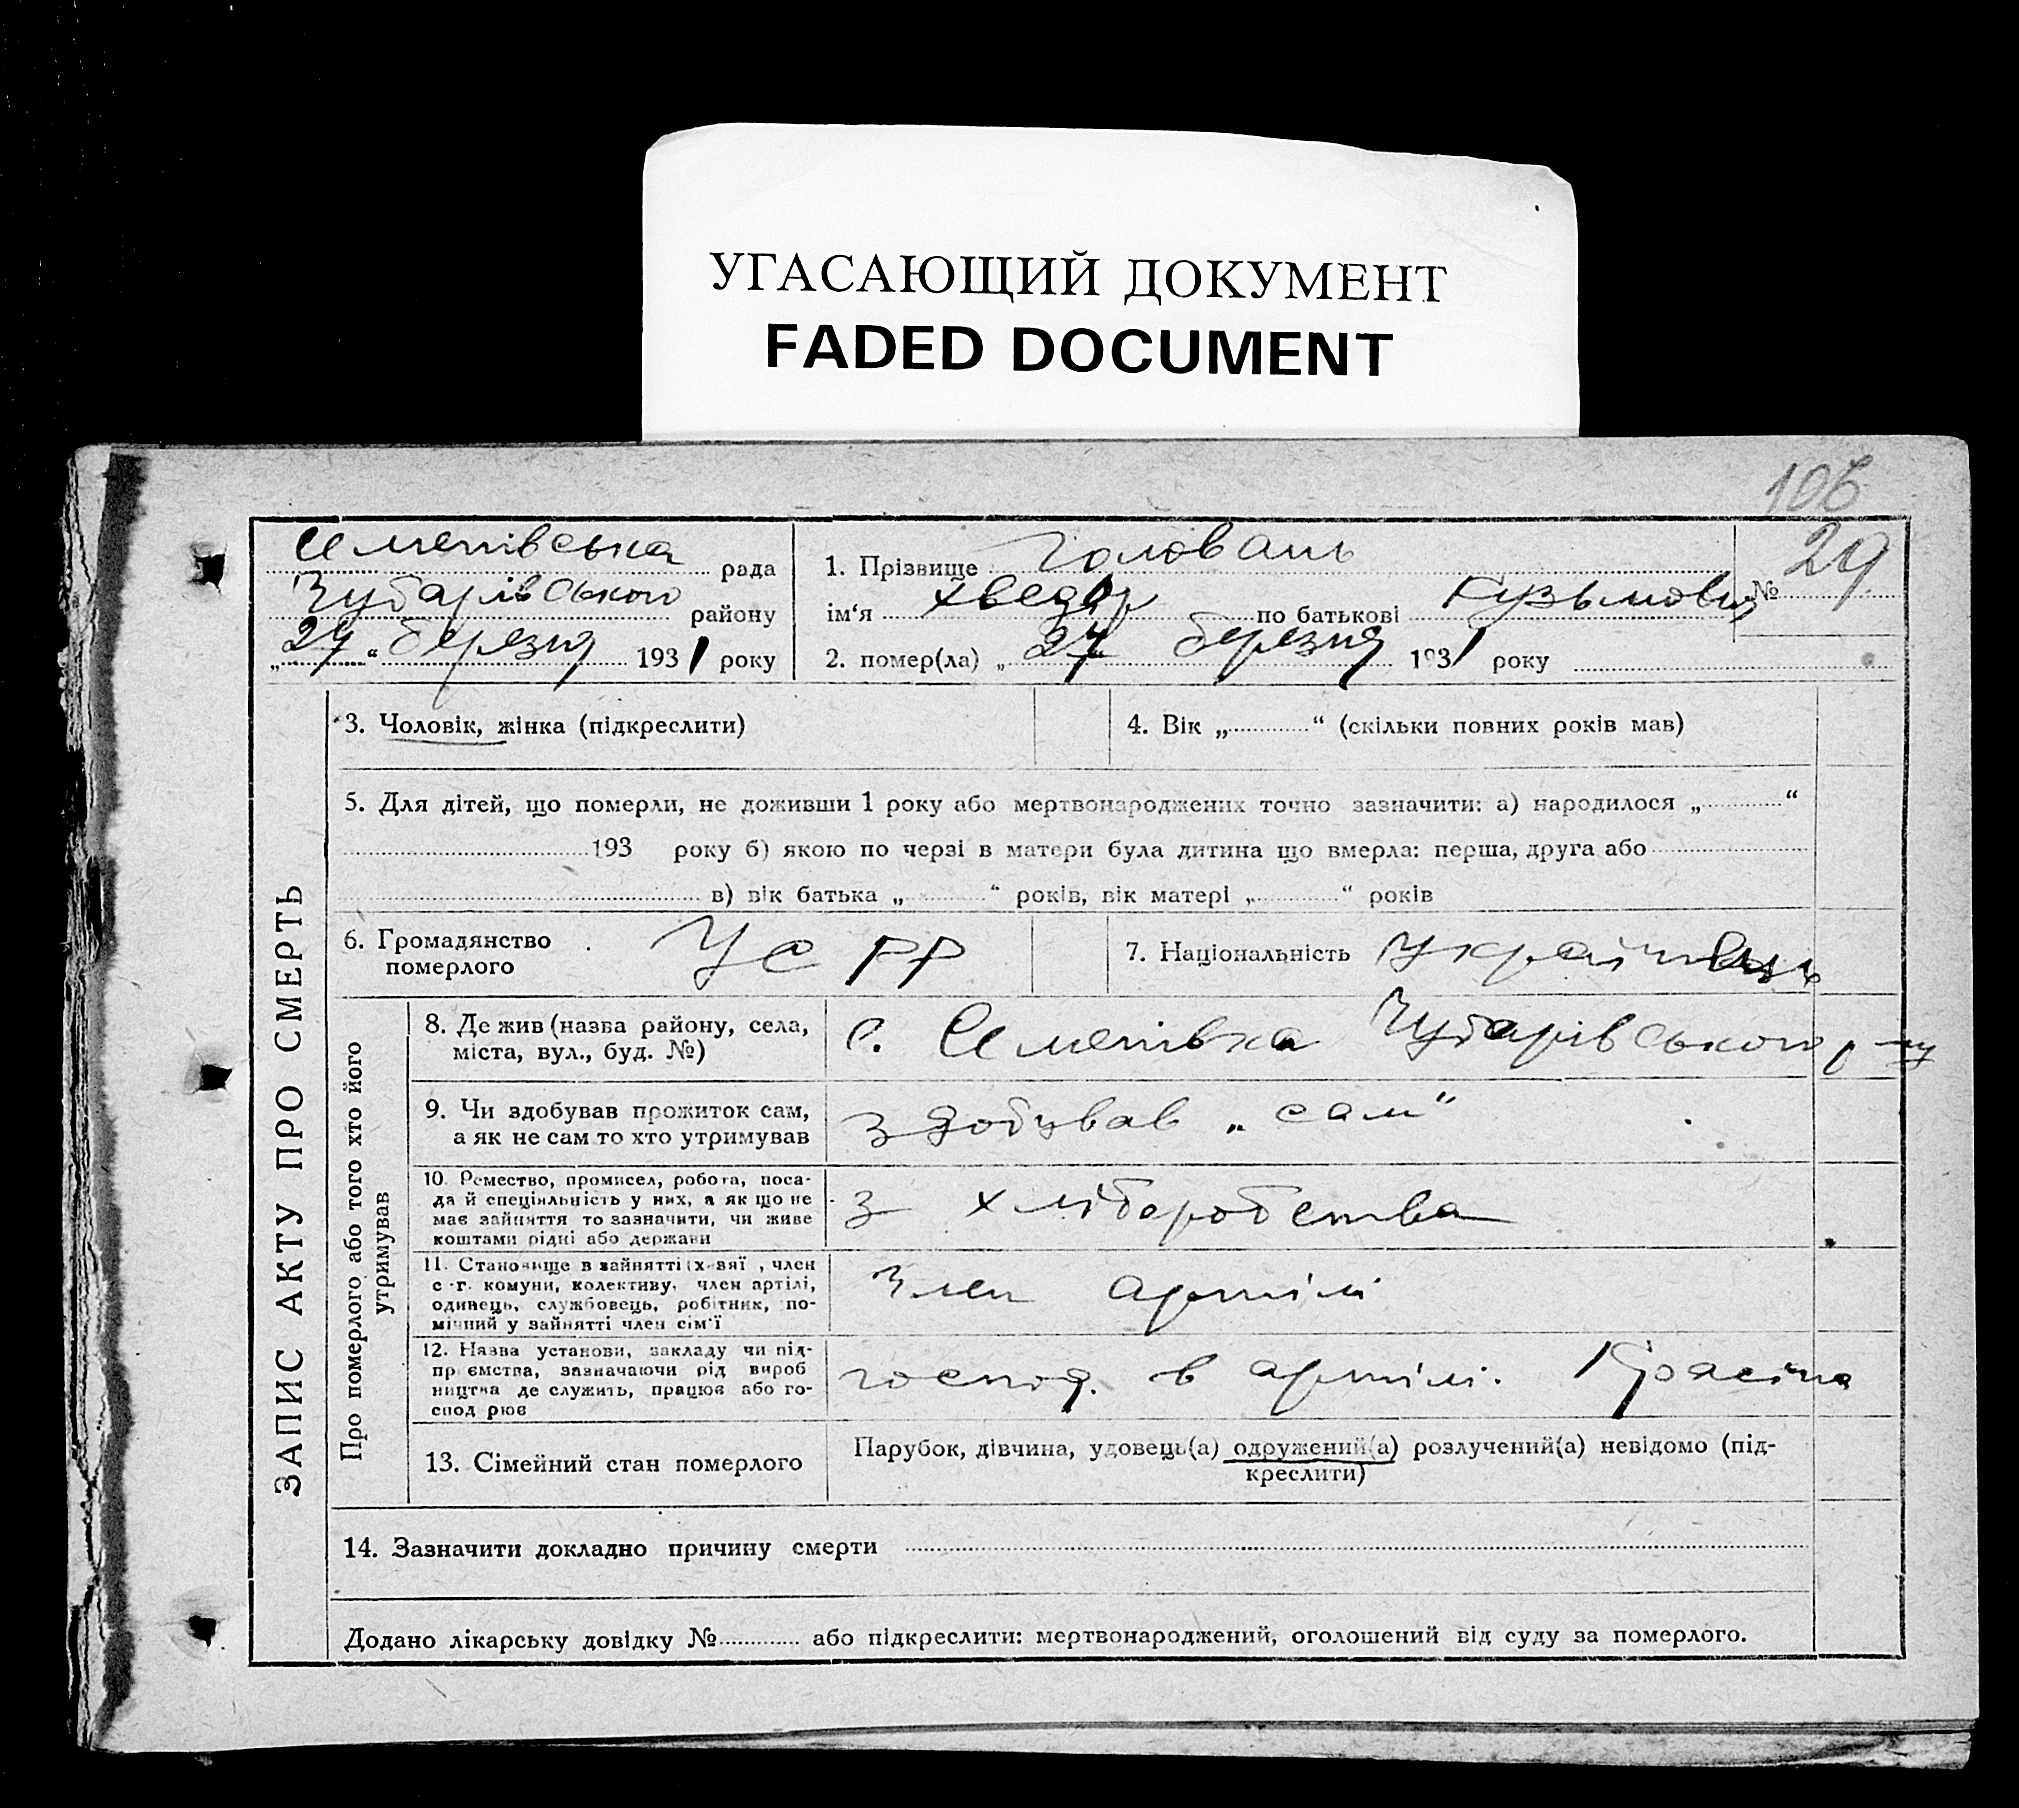 УГАСАЮЩИЙ ДОКУМЕНТ
FADED DOCUMENT
106
Семенівська рада
Чубарівського району
„29“ березня 1931 року
1. Прізвище Головань
ім‘я Хведор по батькові Кузьмович
№ 29
2. помер(ла) „27 березня 1931 року
ЗАПИС АКТУ ПРО СМЕРТЬ
3. Чоловік, жінка (підкреслити)
4. Вік „ “ (скільки повних років мав)
5. Для дітей, що померли, не доживши 1 року або мертвонароджених точно зазначити: а) народилося „ “
193 року б) якою по черзі в матери була дитина що вмерла: перша, друга або
в) вік батька „ “ років, вік матері „ “ років
6. Громадянство померлого УСРР
7. Національність Українець
Про померлого або того хто його утримував
8. Де жив (назва району, села,
міста, вул., буд. №)
с. Семенівка Чубарівського р-ну
9. Чи здобував прожиток сам,
а як не сам то хто утримував
здобував „сам“
10. Ремество, промисел, робота, поса-
да й спеціяльність у них, а як що не
має зайняття то зазначити, чи живе
коштами рідні або держави
з хліборобства
11. Становище в зайнятті (х-вяї , член
с-г. комуни, колективу, член артілі,
одинець, службовець, робітник, по-
мічний у зайнятті член сім'ї
Член артілі
12. Назва установи, закладу чи під-
приємства, зазначаючи рід вироб
ництва де служить, працює або го-
спод рює
господ. в артілі. Красіна
13. Сімейний стан померлого
Парубок, дівчина, удовець(а) одружений(а) розлучений(а) невідомо (під-
креслити)
14. Зазначити докладно причину смерти
Додано лікарську довідку № або підкреслити: мертвонароджений, оголошений від суду за померлого.